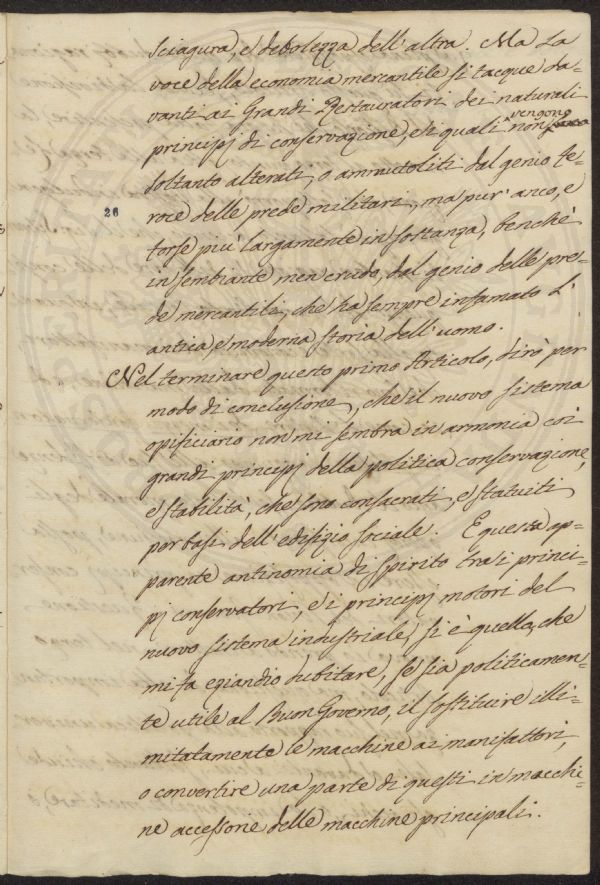 sciagura, e debolezza dell'altra. Ma la
voce della economia mercantile si tacque da=
vanti ai Grandi Restauratori dei naturali
principj di conservazione, e i quali non vengono
soltanto alterati, o ammutoliti dal genio fe=
26
roce delle prede militari, ma pur' anco, e
forse più largamente in sostanza, benchè
in sembiante men crudo, dal genio delle pre=
de mercantili, che ha sempre infamato l'
antica, e moderna storia dell'uomo.
Nel terminare questo primo Articolo, dirò per
modo di conclusione, che il nuovo sistema
opificiario non mi sembra in armonia coi
grandi principj della politica conservazione,
e stabilità, che sono consacrati, e statuiti
per basi dell'edifizio sociale. E questa ap=
parente antinomia di spirito tra i princi=
pj conservatori, e i principj motori del
nuovo sistema industriale, si è quella, che
mi fa eziandio dubitare, se sia politicamen=
te utile al Buon Governo, il sostituire illi=
mitatamente le macchine ai manifattori,
o convertire una parte di questi in macchi=
ne accessorie delle macchine principali.